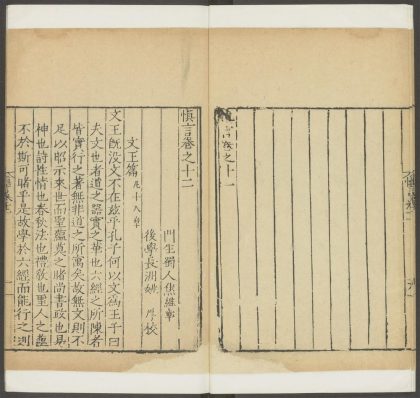 慎言卷之十一
慎言卷之十二
門生蜀人焦維章
後學長洲姚 校
文王篇 凡十八章
文王既没文不在茲乎孔子何以文爲王子曰
夫文也者道之器實之華也六經之所陳者
皆實行之著無非道之所寓矣故無文則不
足以昭示來世而聖蘊莫之睹尚書政也易
神也詩性情也春秋法也禮教也聖人之蘊
不於斯可睹乎是故學於六經而能行之則